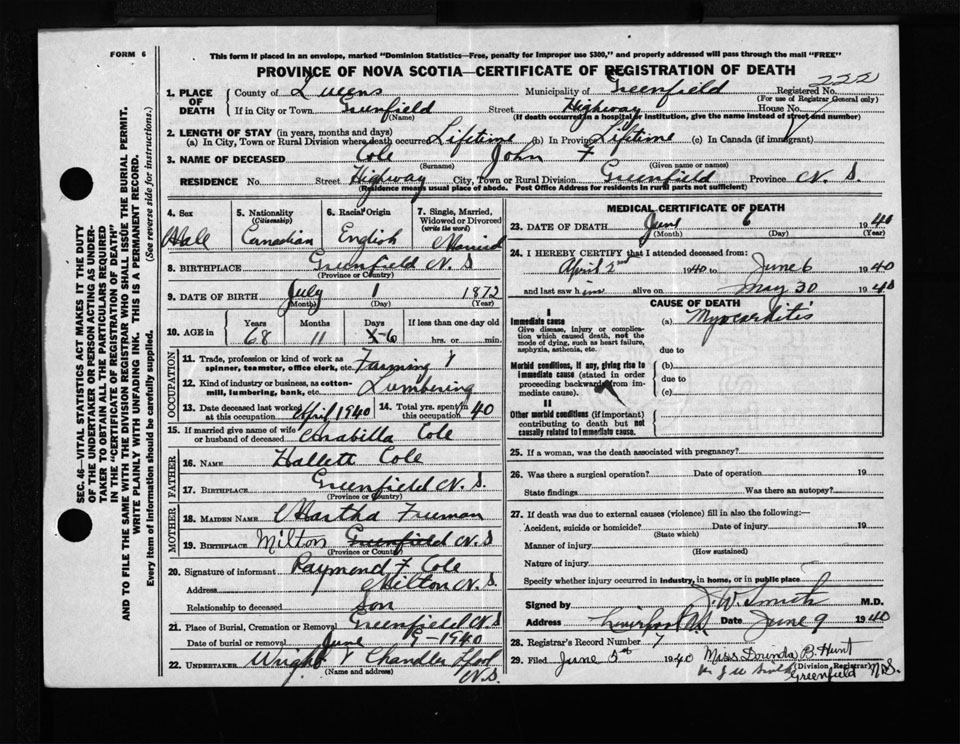 FORM 6
This form if placed in an envelope, marked "Dominion Statistics—Free, penalty for improper use $300," and properly addressed will pass through the mail "FREE"
PROVINCE OF NOVA SCOTIA—CERTIFICATE OF REGISTRATION OF DEATH
222
1. PLACE OF DEATH County of Queens Municipality of Greenfield Registered No.
(For use of Registrar General only)
If in City or Town Greenfield Street Highway House No.
(Name) (If death occurred in a hospital or institution, give the name instead of street and number)
2. LENGTH OF STAY (in years, months and days)
(a) In City, Town or Rural Division where death occurred Lifetime (b) In Province Lifetime (c) In Canada (if immigrant)
3. NAME OF DECEASED Cole John F
(Surname) (Given name or names)
RESIDENCE No. Street Highway City, Town or Rural Division Greenfield Province N. S.
(Residence means usual place of abode. Post Office Address for residents in rural parts not sufficient)
4. Sex 5. Nationality (Citizenship) 6. Racial Origin 7. Single, Married, Widowed or Divorced (write the word)
Male Canadian English Married
8. BIRTHPLACE Greenfield N. S
(Province or Country)
9. DATE OF BIRTH July 1 1872
(Month) (Day) (Year)
10. AGE in Years Months Days If less than one day old
68 11 X-6 hrs. or min.
OCCUPATION
11. Trade, profession or kind of work as spinner, teamster, office clerk, etc. Farming &
12. Kind of industry or business, as cotton-mill, lumbering, bank, etc. Lumbering
13. Date deceased last worked at this occupation April 1940 14. Total yrs. spent in this occupation 40
15. If married give name of wife or husband of deceased Arabilla Cole
FATHER
16. NAME Hallett Cole
17. BIRTHPLACE Greenfield N. S
(Province or Country)
MOTHER
18. MAIDEN NAME Martha Freeman
19. BIRTHPLACE Milton Greenfield N. S
(Province or Country)
20. Signature of informant Raymond F Cole
Address Milton N. S.
Relationship to deceased Son
21. Place of Burial, Cremation or Removal Greenfield N. S
Date of burial or removal June 9-1940
22. UNDERTAKER Wright & Chandler Lpool
(Name and address) N.S.
MEDICAL CERTIFICATE OF DEATH
23. DATE OF DEATH June 6 1940
(Month) (Day) (Year)
24. I HEREBY CERTIFY that I attended deceased from:
April 2nd 1940 to June 6 1940
and last saw him alive on May 30 1940
CAUSE OF DEATH
I
Immediate cause (a) Myocarditis
Give disease, injury or complication which caused death, not the mode of dying, such as heart failure, asphyxia, asthenia, etc.
due to
Morbid conditions, if any, giving rise to immediate cause (stated in order proceeding backwards from immediate cause).
(b)
due to
(c)
II
Other morbid conditions (if important) contributing to death but not causally related to immediate cause.
25. If a woman, was the death associated with pregnancy?
26. Was there a surgical operation? Date of operation 19
State findings Was there an autopsy?
27. If death was due to external causes (violence) fill in also the following:—
Accident, suicide or homicide? Date of injury 19
(State which)
Manner of injury
(How sustained)
Nature of injury
Specify whether injury occurred in industry, in home, or in public place
Signed by J. W. Smith M.D.
Address Liverpool NS Date June 9 1940
28. Registrar's Record Number 7
29. Filed June 5th 1940 Miss Dorinda B. Hunt
(Division Registrar)
Greenfield N.S.
SEC. 46—VITAL STATISTICS ACT MAKES IT THE DUTY OF THE UNDERTAKER OR PERSON ACTING AS UNDERTAKER TO OBTAIN ALL THE PARTICULARS REQUIRED IN THE "CERTIFICATE OF REGISTRATION OF DEATH"
AND TO FILE THE SAME WITH THE DIVISION REGISTRAR WHO SHALL ISSUE THE BURIAL PERMIT.
WRITE PLAINLY WITH UNFADING INK. THIS IS A PERMANENT RECORD.
Every item of information should be carefully supplied. (See reverse side for instructions.)